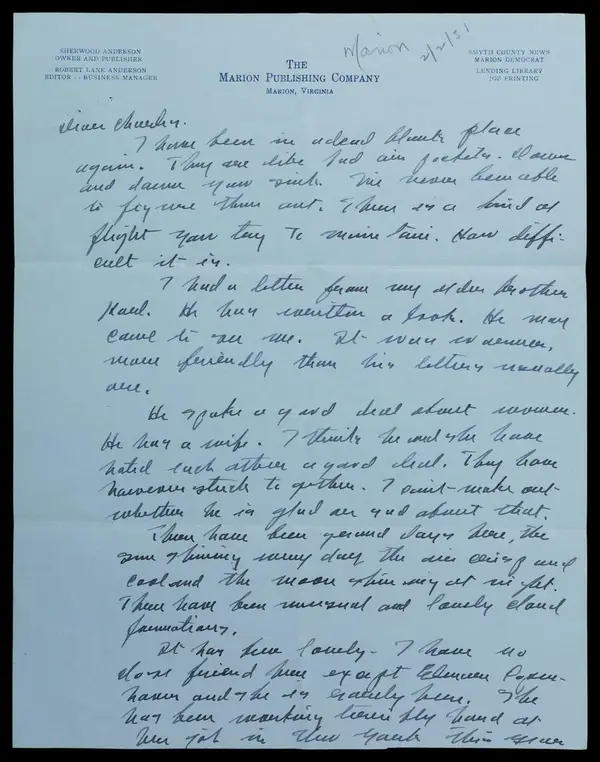 Marion
2/2/31
SHERWOOD ANDERSON
OWNER AND PUBLISHER
ROBERT LANE ANDERSON
EDITOR -- BUSINESS MANAGER
THE
MARION PUBLISHING COMPANY
MARION, VIRGINIA
SMYTH COUNTY NEWS
MARION DEMOCRAT
LENDING LIBRARY
JOB PRINTING
Dear Charles.
I have been in a dead blank place
again. They are like bad air pockets. Down
and down you sink. I've never been able
to figure them out. There is a kind of
flight you try to maintain. How diffi-
cult it is.
I had a letter from my older brother
Karl. He has written a book. He may
come to see me. It was warmer,
more friendly than his letters usually
are.
He spoke a good deal about women.
He has a wife. I think he and she have
hated each other a good deal. They have
however stuck to gether. I can't make out
whether he is glad or sad about that.
There have been grand days here, the
sun shining every day the air crisp and
cool and the moon shining at night.
There have been unusual and lovely cloud
formations.
It has been lonely - I have no
close friend here except Eleanor Copen-
haver and she is rarely here. She
has been working terribly hard at
her job in New York this year